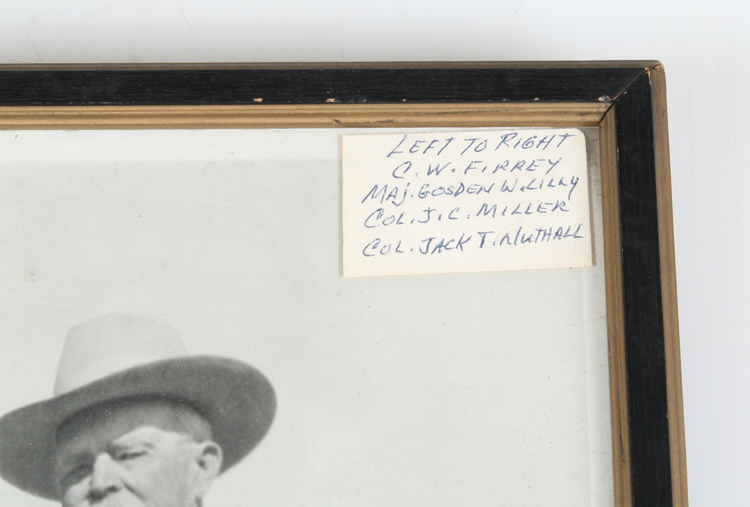 LEFT TO RIGHT
C. W. FIRREY
MAJ. GOSDEN W. LILLY
COL. J. C. MILLER
COL. JACK T. NUTHALL